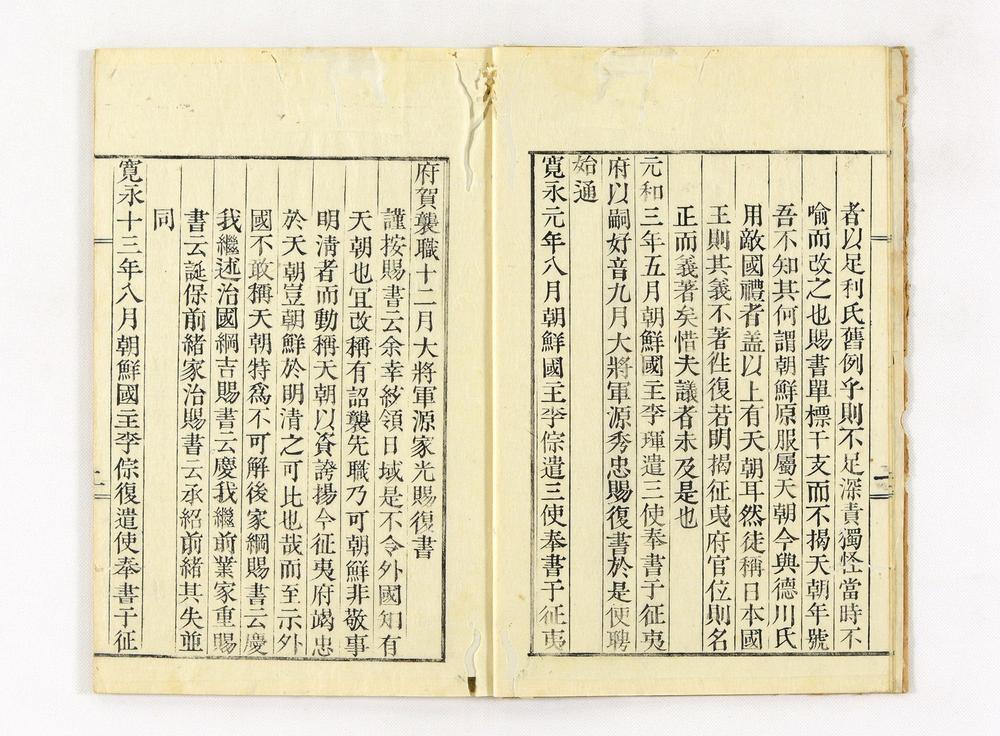 者以足利氏舊例乎則不足深責獨怪當時不
喻而改之也賜書單標干支而不揭天朝年號
吾不知其何謂朝鮮原服屬天朝今與德川氏
用敵國禮者盖以上有天朝耳然徒稱日本國
王則其義不著徃復若明揭征夷府官位則名
正而義著矣惜夫議者未及是也
元和三年五月朝鮮國王李琿遣三使奉書于征夷
府以嗣好音九月大將軍源秀忠賜復書於是使聘
始通
寛永元年八月朝鮮國王李倧遣三使奉書于征夷
二
府賀襲職十二月大將軍源家光賜復書
謹按賜書云余幸紗領日域是不令外國知有
天朝也冝改稱有詔襲先職乃可朝鮮非敬事
明淸者而動稱天朝以資誇揚今征夷府竭忠
於天朝豈朝鮮於明清之可比也哉而至示外
國不敢稱天朝特爲不可解後家綱賜書云慶
我繼述治國綱吉賜書云慶我繼前業家重賜
書云誕保前緒家治賜書云承紹前緒其失並
同
寛永十三年八月朝鮮國王李倧復遣使奉書于征